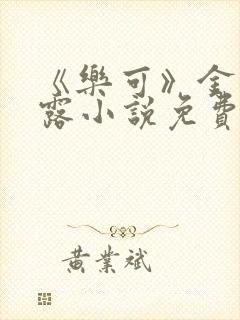 《樂可》金
露小說免費
黃業斌